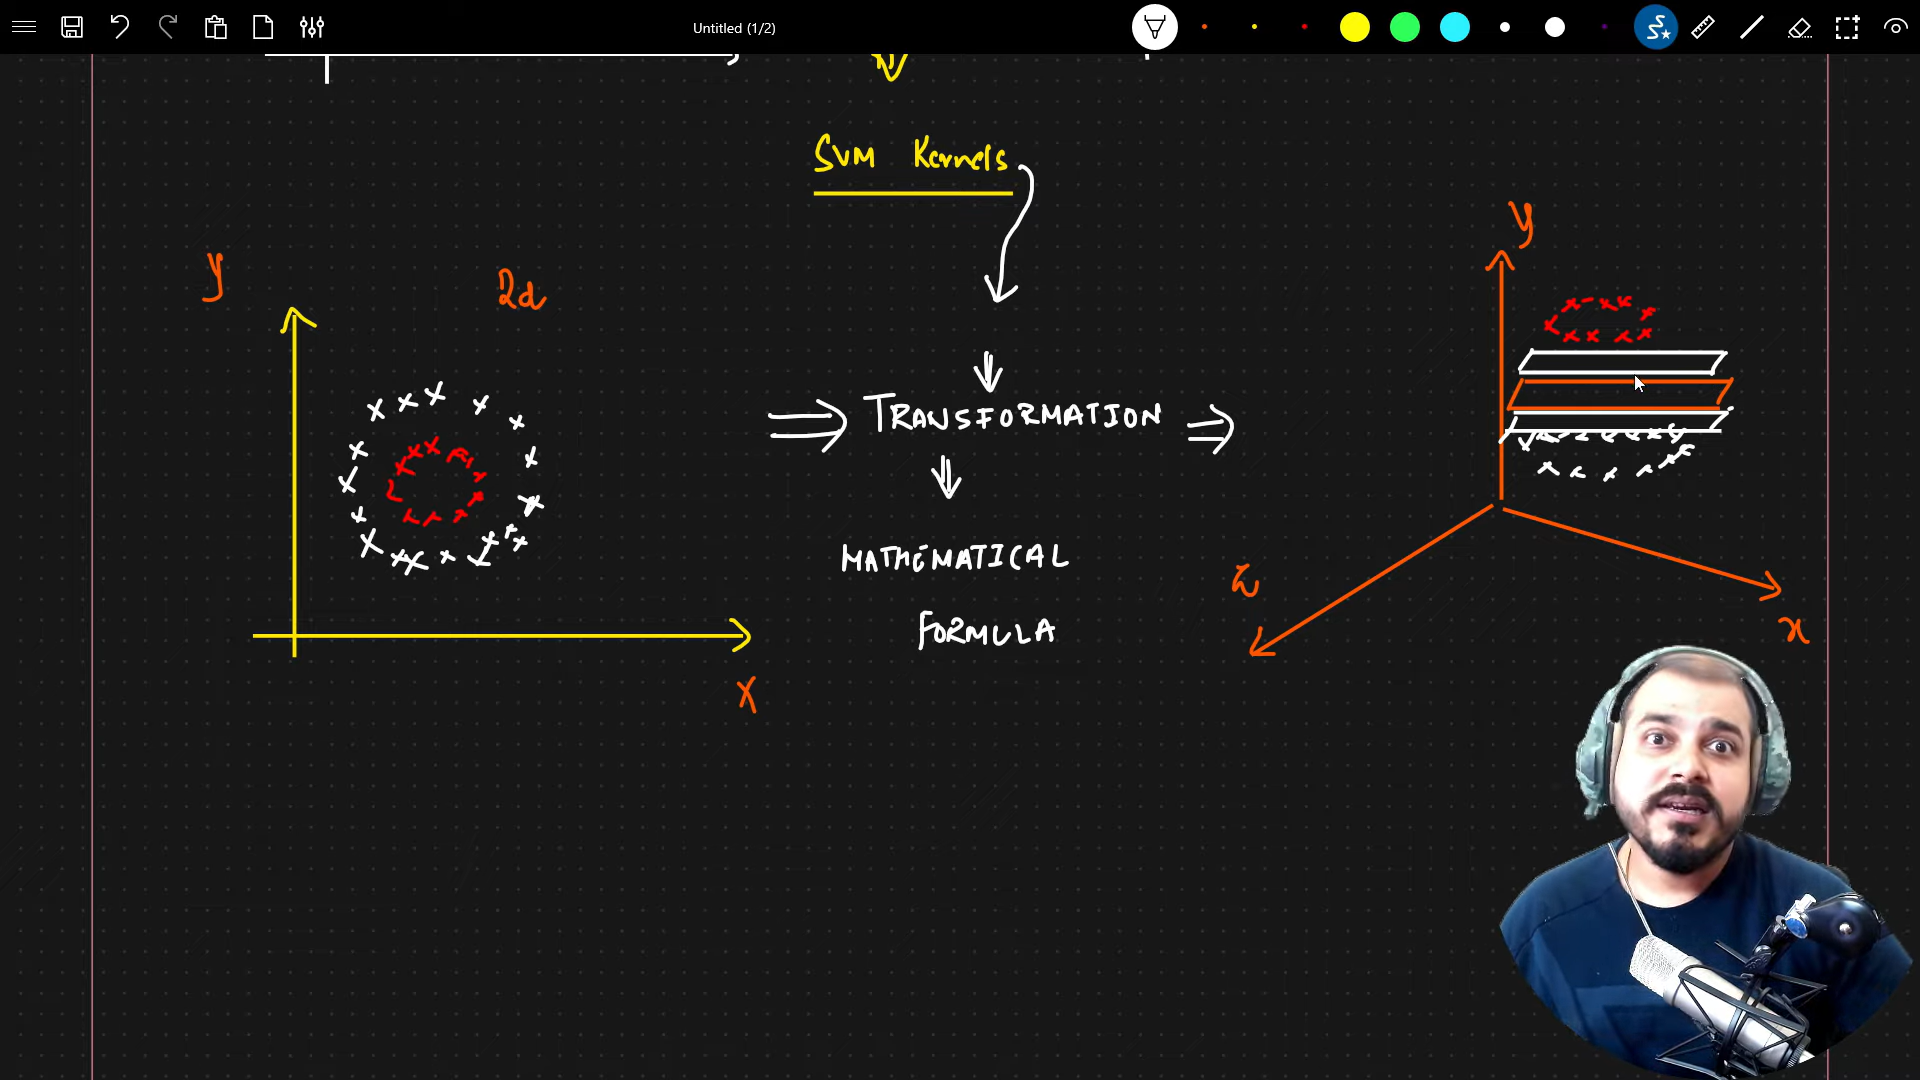 Untitled (1/2)
SVM Kernels
y
2d
y
TRANSFORMATION
MATHEMATICAL
FORMULA
z
x
X